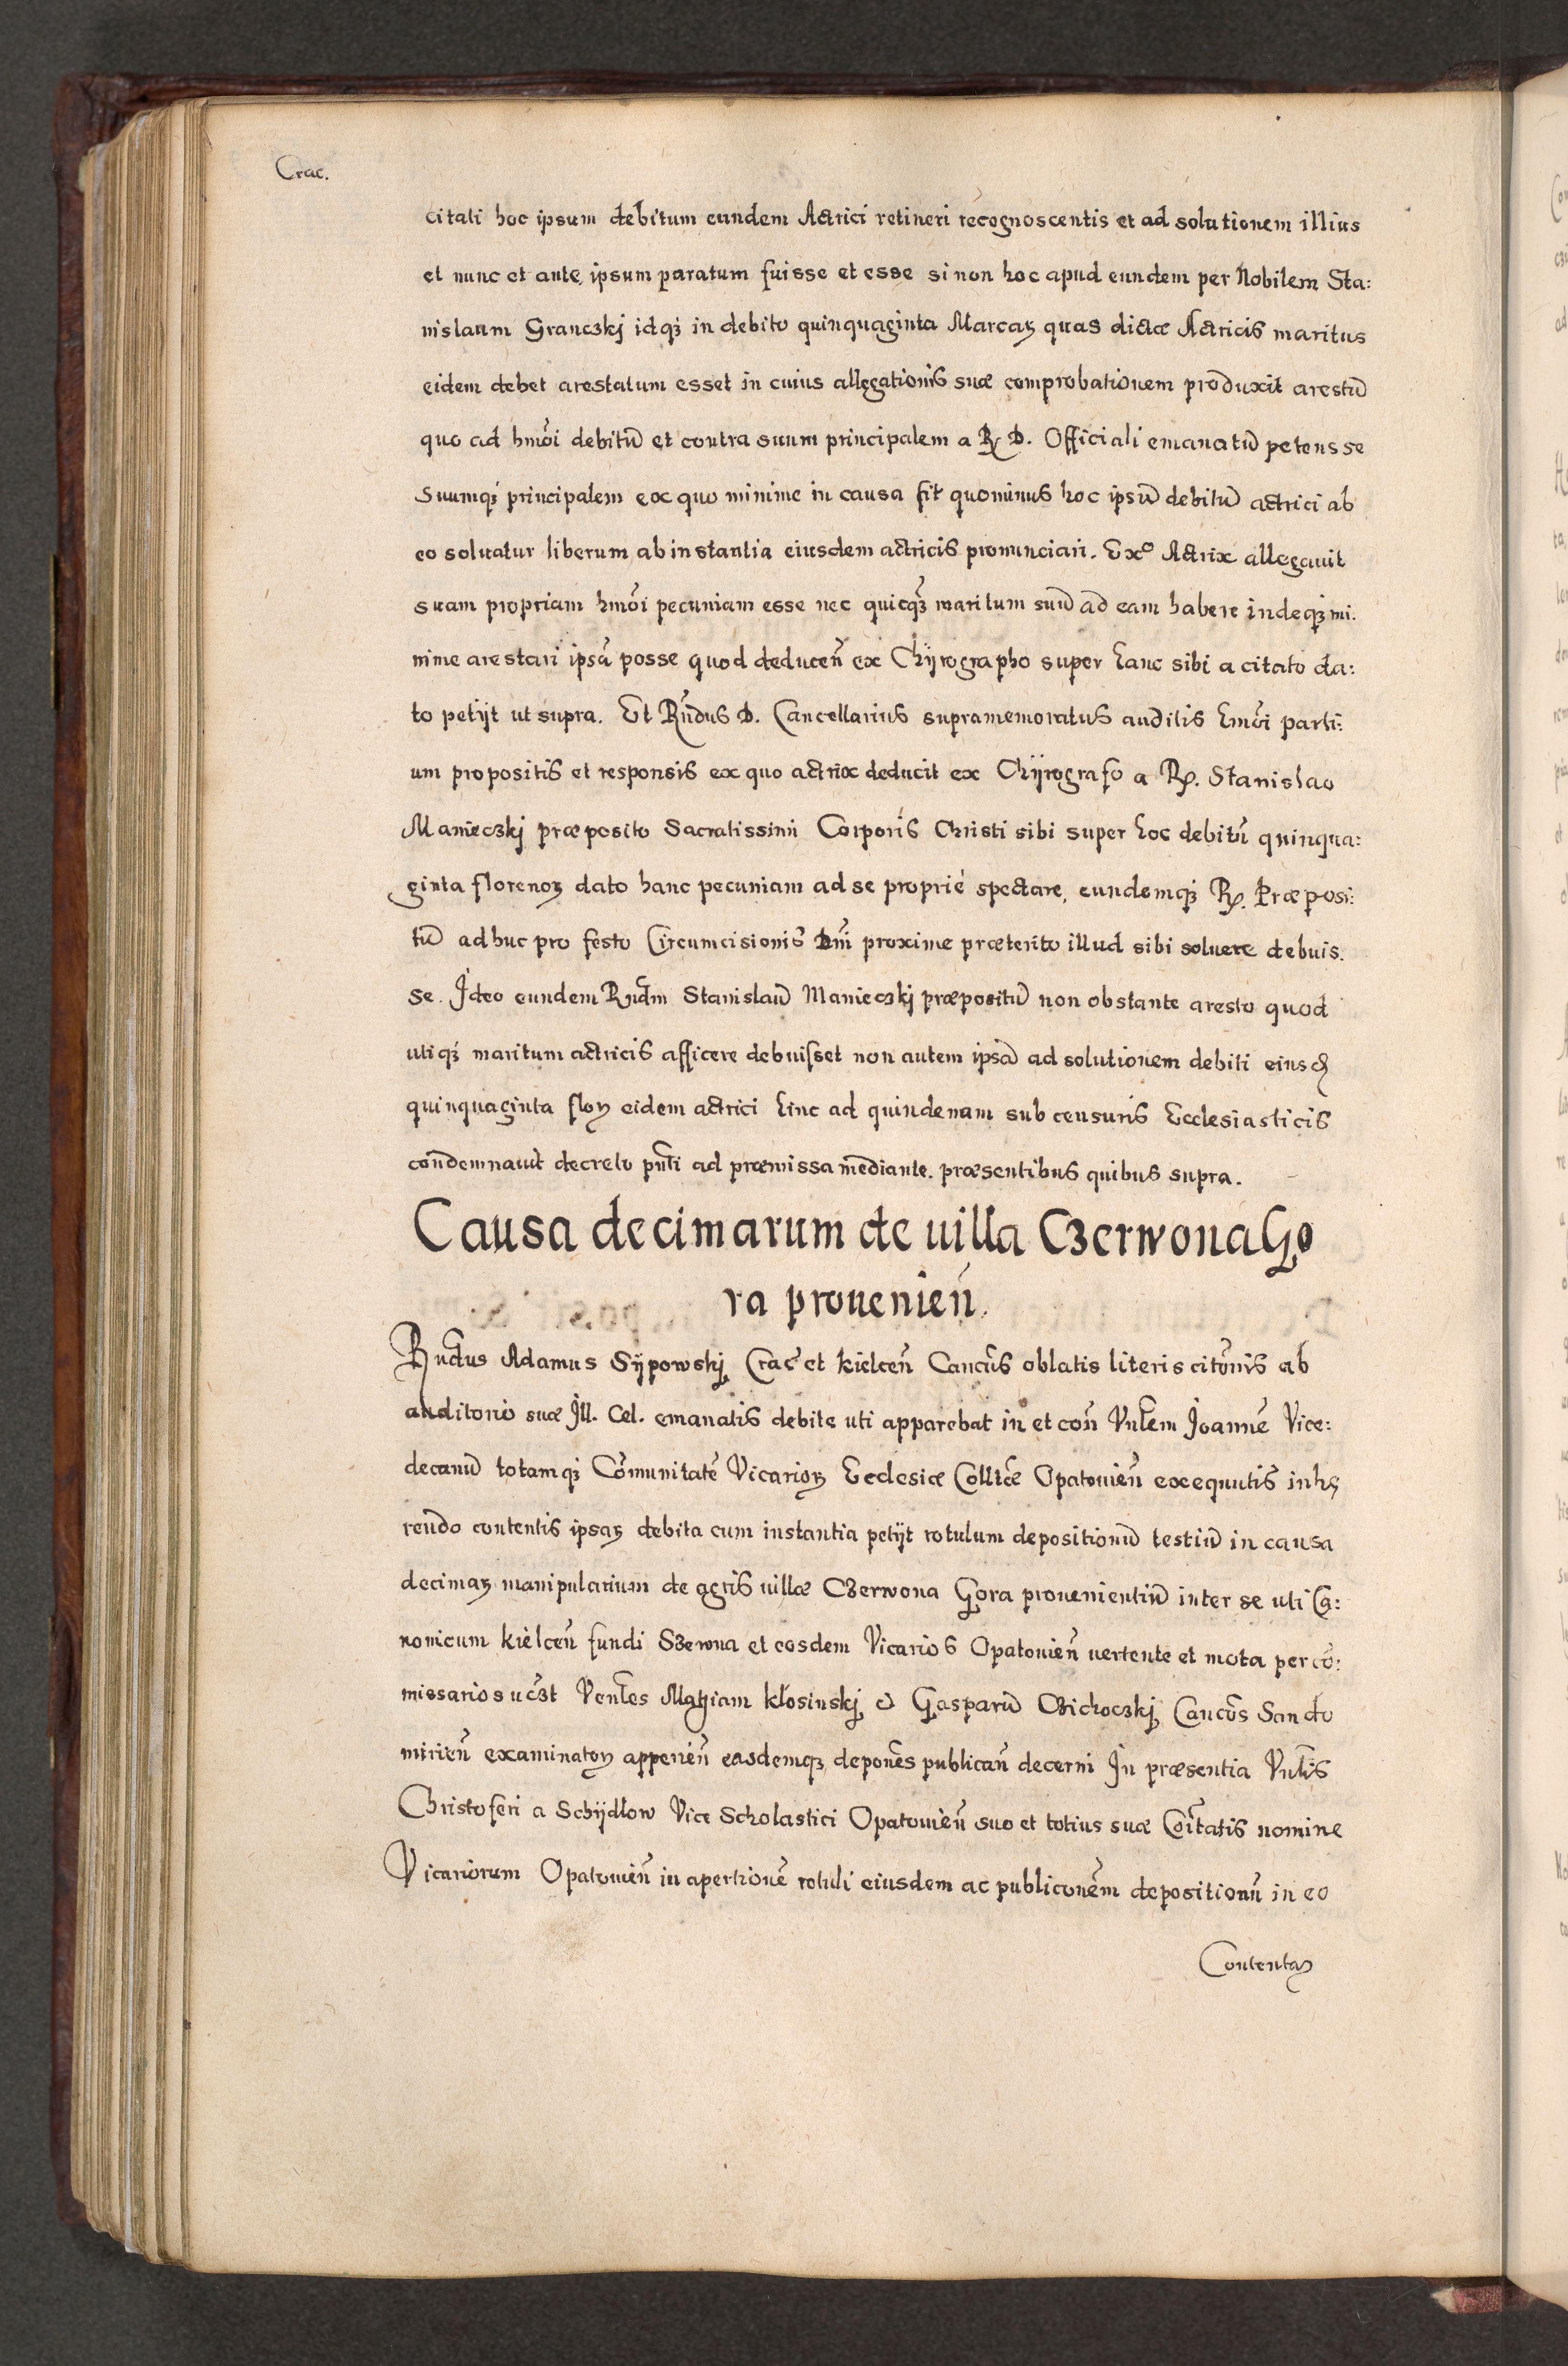 Crac.
citati hoc ipsum debitum eundem Actrici retineri recognoscentis et ad solutionem illius
et nunc et ante ipsum paratum fuisse et esse si non hoc apud eundem per Nobilem Sta:
nislaum Granczkj idqꝫ in debito quinquaginta Marcaꝝ quas dictæ Actricis maritus
eidem debet arestatum esset in cuius allegationis suæ comprobationem produxit arestū
quo ad hmōi debitū et contra suum principalem a R. D. Officiali emanatū petens se
Suumqꝫ principalem ex quo minime in causa sit quominus hoc ipsū debitū actrici ab
eo soluatur liberum ab instantia eiusdem actricis pronunciari. Exº Actrix allegauit
suam propriam hmōi pecuniam esse nec quicqꝫ maritum suū ad eam habere indeqꝫ mi:
nime arestari ipsā posse quod deducen̄ ex Chÿrographo super hanc sibi a citato da:
to petijt ut supra. Et Rn̄dus D. Cancellarius supramemoratus auditis hmōi parti:
um propositis et responsis ex quo actrix deducit ex Chÿrografo a R. Stanislao
Manieczkj præposito Sacratissimi Corporis Christi sibi super hoc debitū quinqua:
ginta florenoꝝ dato hanc pecuniam ad se proprie spectare, eundemqꝫ R. Præposi:
tū adhuc pro festo Circumcisionis Dn̄i proxime præterito illud sibi soluere debuis.
se. Ideo eundem Rn̄dm Stanislaū Manieczkj præpositū non obstante aresto quod
utiqꝫ maritum actricis afficere debuisset non autem ipsā ad solutionem debiti eiusd
quinquaginta floꝝ eidem actrici hinc ad quindenam sub censuris Ecclesiasticis
condemnauit decreto pn̄ti ad præmissa mediante. præsentibus quibus supra.
Causa decimarum de uilla Czerwona Go
ra prouenien̄.
Rn̄dus Adamus Sÿpowskj Crac̄ et kielcen̄ Cancus oblatis literis citōnis ab
auditorio suæ Ill. Cel. emanatis debite uti apparebat in et con̄ Vn̄lem Joannē Vice:
decanū totamqꝫ Cōmunitatē Vicarioꝝ Ecclesiæ Collitæ Opatouien̄ exequutis inhę
rendo contentis ipsaꝝ debita cum instantia petijt rotulum depositionū testiū in causa
decimaꝝ manipularium de agris uillæ Czerwona Gora prouenientiū inter se uti Ca:
nonicum kielcen̄ fundi Szewna et eosdem Vicarios Opatouien̄ uertente et mota per cō:
missarios uczt Ven̄les Matziam kłosinskj et Gasparū Czichoczkj Cancōs Sando
mirien̄ examinatoꝝ apperien̄ easdemqꝫ deponēs publican̄ decerni In præsentia Vn̄lis
Christoferi a Schÿdłow Vice Scholastici Opatouien̄ suo et totius suæ Cōitatis nomine
Vicariorum Opatouien̄ in apertionē rotuli eiusdem ac publiconēm depositionū in eo
Contentaꝝ